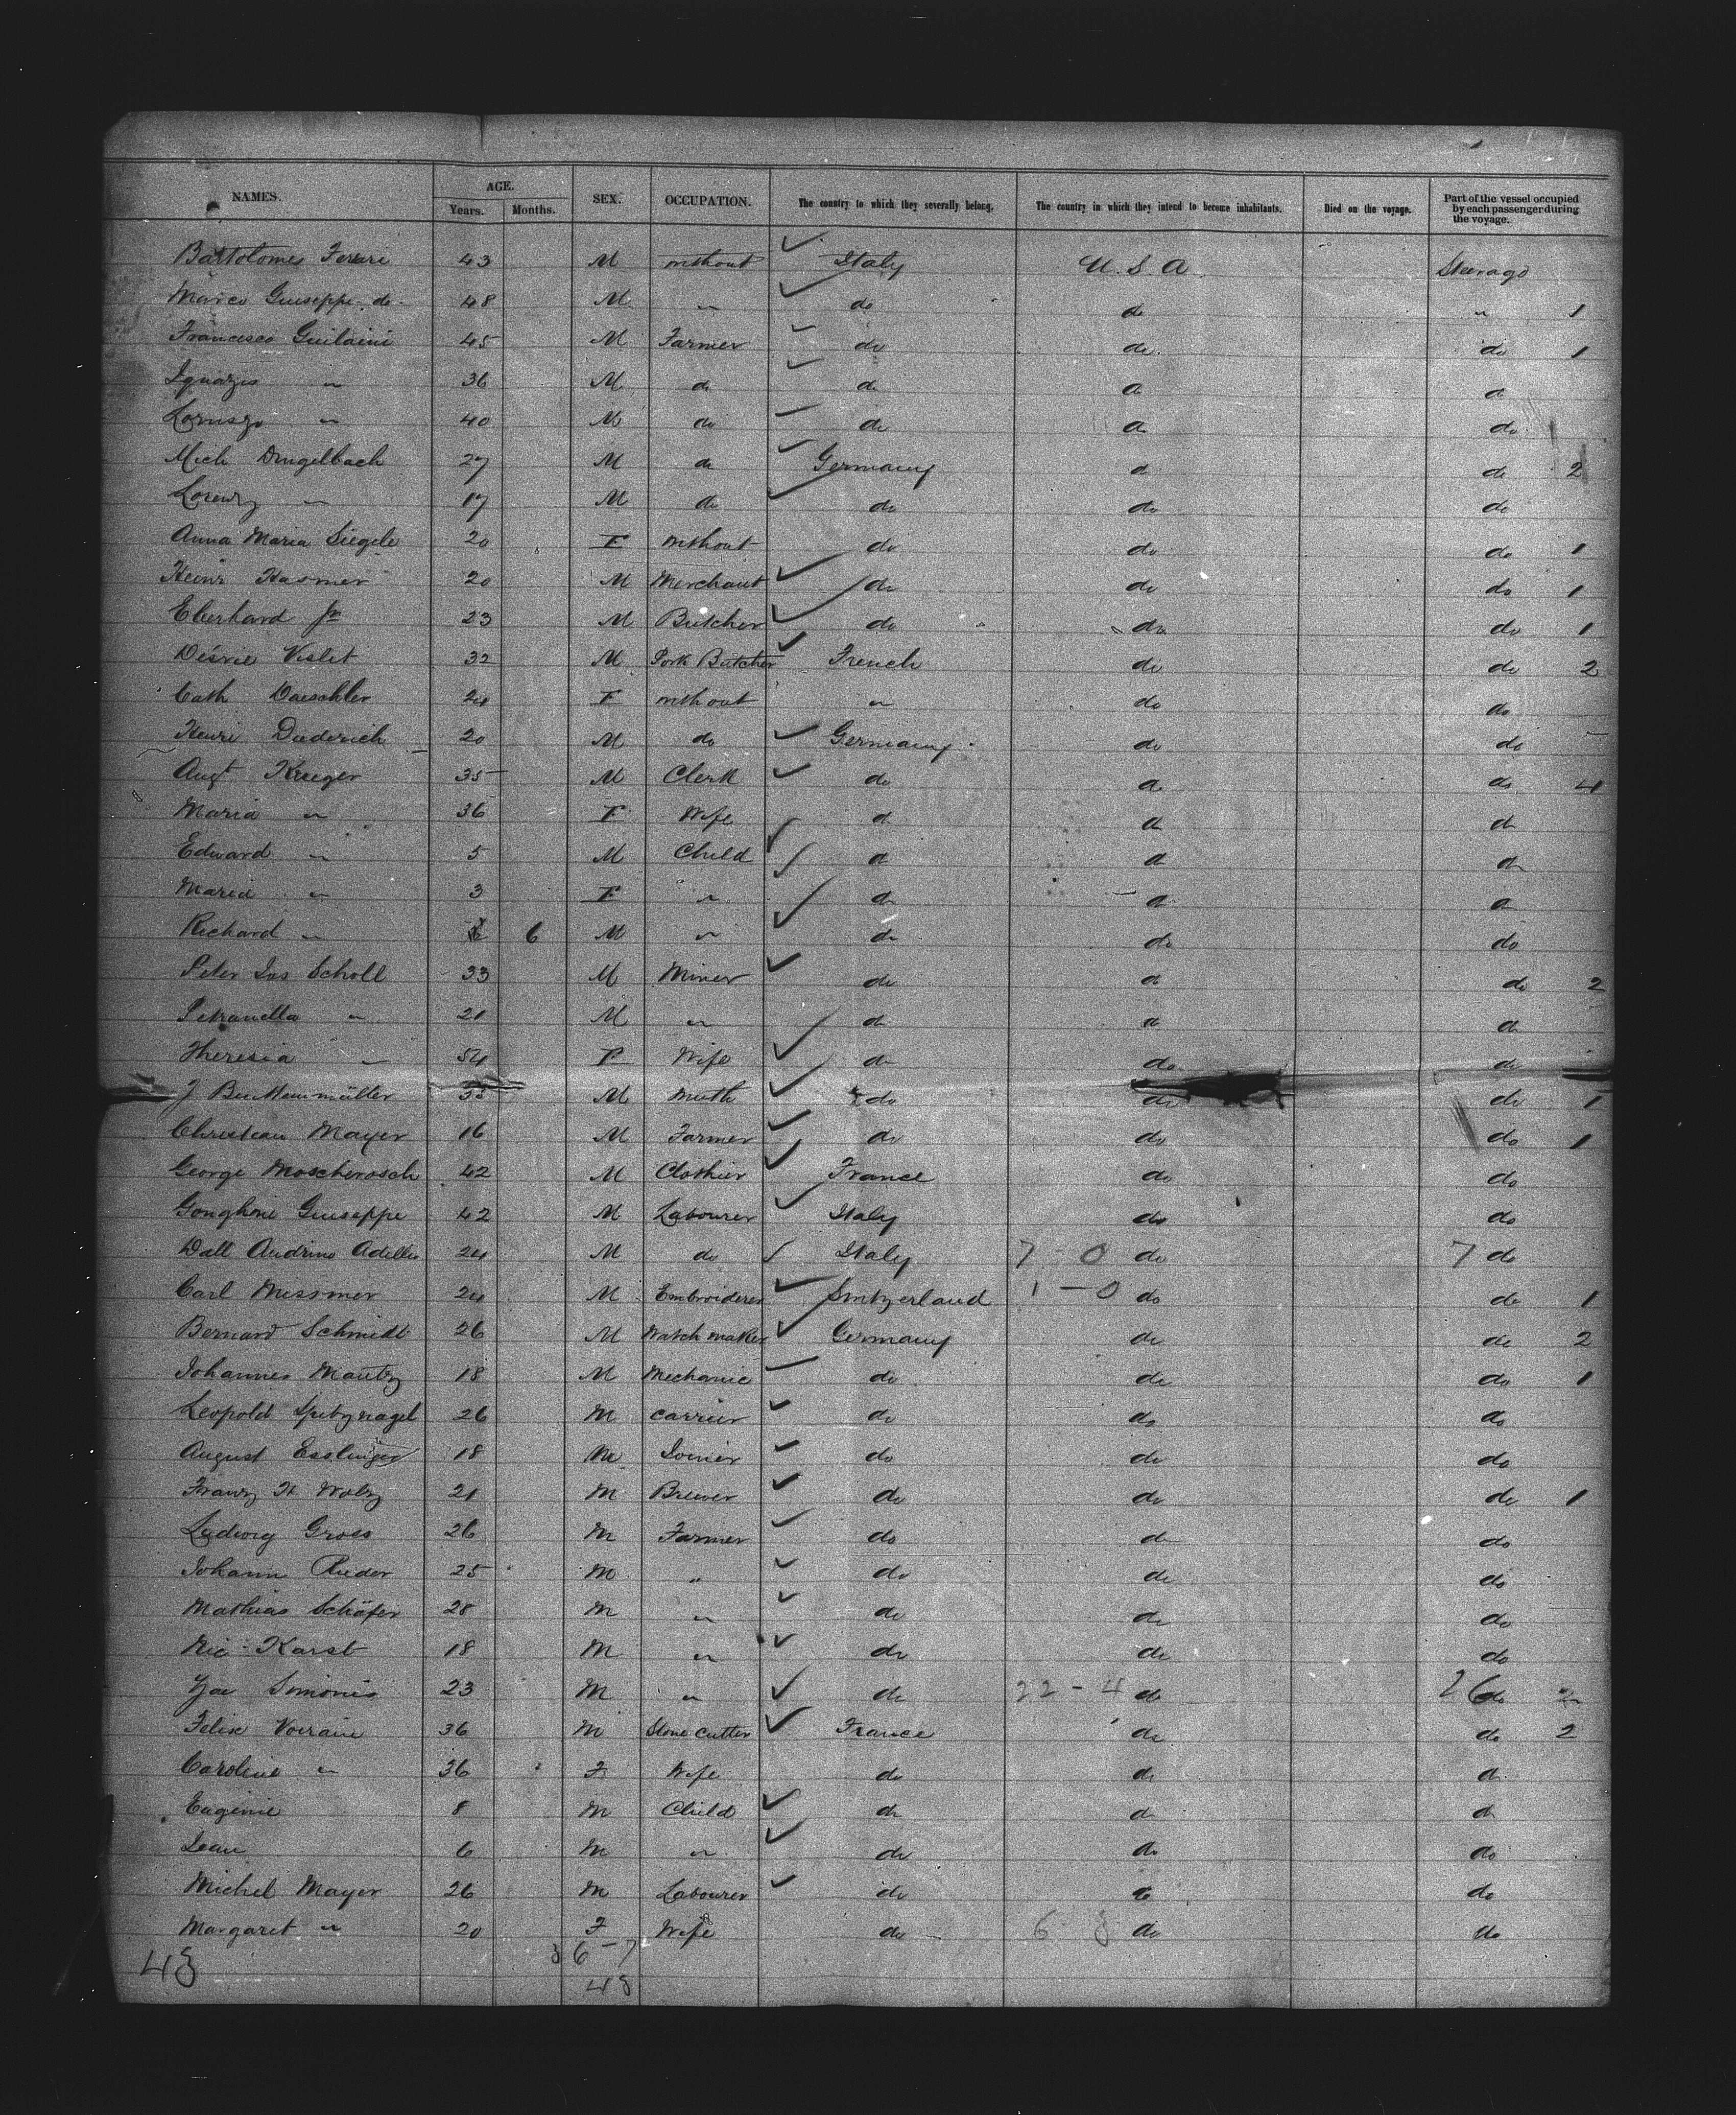 NAMES. AGE. Years. Months. SEX. OCCUPATION. The country to which they severally belong. The country in which they intend to become inhabitants. Died on the voyage. Part of the vessel occupied by each passenger during the voyage.
Bartolomeo Ferrare 43 M without Italy U.S.A. Steerage
Marco Giuseppe de 48 M " do do " 1
Francesco Guilaini 45 M Farmer do do do 1
Ignazio " 36 M do do do do
Lorenzo " 40 M do do do do
Mich Dingelbach 27 M do Germany do do 2
Lorenz " 17 M do do do do
Anna Maria Siegele 20 F without do do do 1
Heinr Hasmer 20 M Merchant do do do 1
Eberhard Jn 23 M Butcher do do do 1
Désiré Veslet 32 M Pork Butcher French do do 2
Cath Daeschler 24 F without " do do
Henri Diederich 20 M do Germany do do
Augt Krieger 35 M Clerk do do do 4
Maria " 36 F Wife do do do
Edward " 5 M Child do do do
Maria " 3 F " do do do
Richard " 6 M " do do do
Peter Jos Scholl 33 M Miner do do do 2
Petranella " 21 M " do do do
Theresia " 54 F Wife do do do
J 35 M do do do 1
Christian Mayer 16 M Farmer do do do 1
George Moscherosch 42 M Clothier France do do
Gonghrie Giuseppe 42 M Labourer Italy do do
Dall Andrino Adelko 24 M do Italy 7 - 0 do 7 do
Carl Messmer 24 M Embroiderer Switzerland 1 - 0 do do 1
Bernard Schmidt 26 M Watch maker Germany do do 2
Johannes Mautz 18 M Mechanic do do do 1
Leopold Spitznagel 26 M Carrier do do do
August Esslinger 18 M Joiner do do do
Franz X Wolz 21 M Brewer do do do 1
Ludwig Gross 26 M Farmer do do do
Johann Rieder 25 M " do do do
Mathias Schäfer 28 M " do do do
Nic Karst 18 M " do do do
Simonis 23 M " do 22 - 4 do 26 do
Felix Voirain 36 M Stone cutter France do do 2
Caroline " 36 F Wife do do do
Eugenie 8 M Child do do do
Jean 6 M " do do do
Michel Mayer 26 M Labourer do do do
Margaret " 20 F Wife do 6 3 do do
43 36 - 7
43